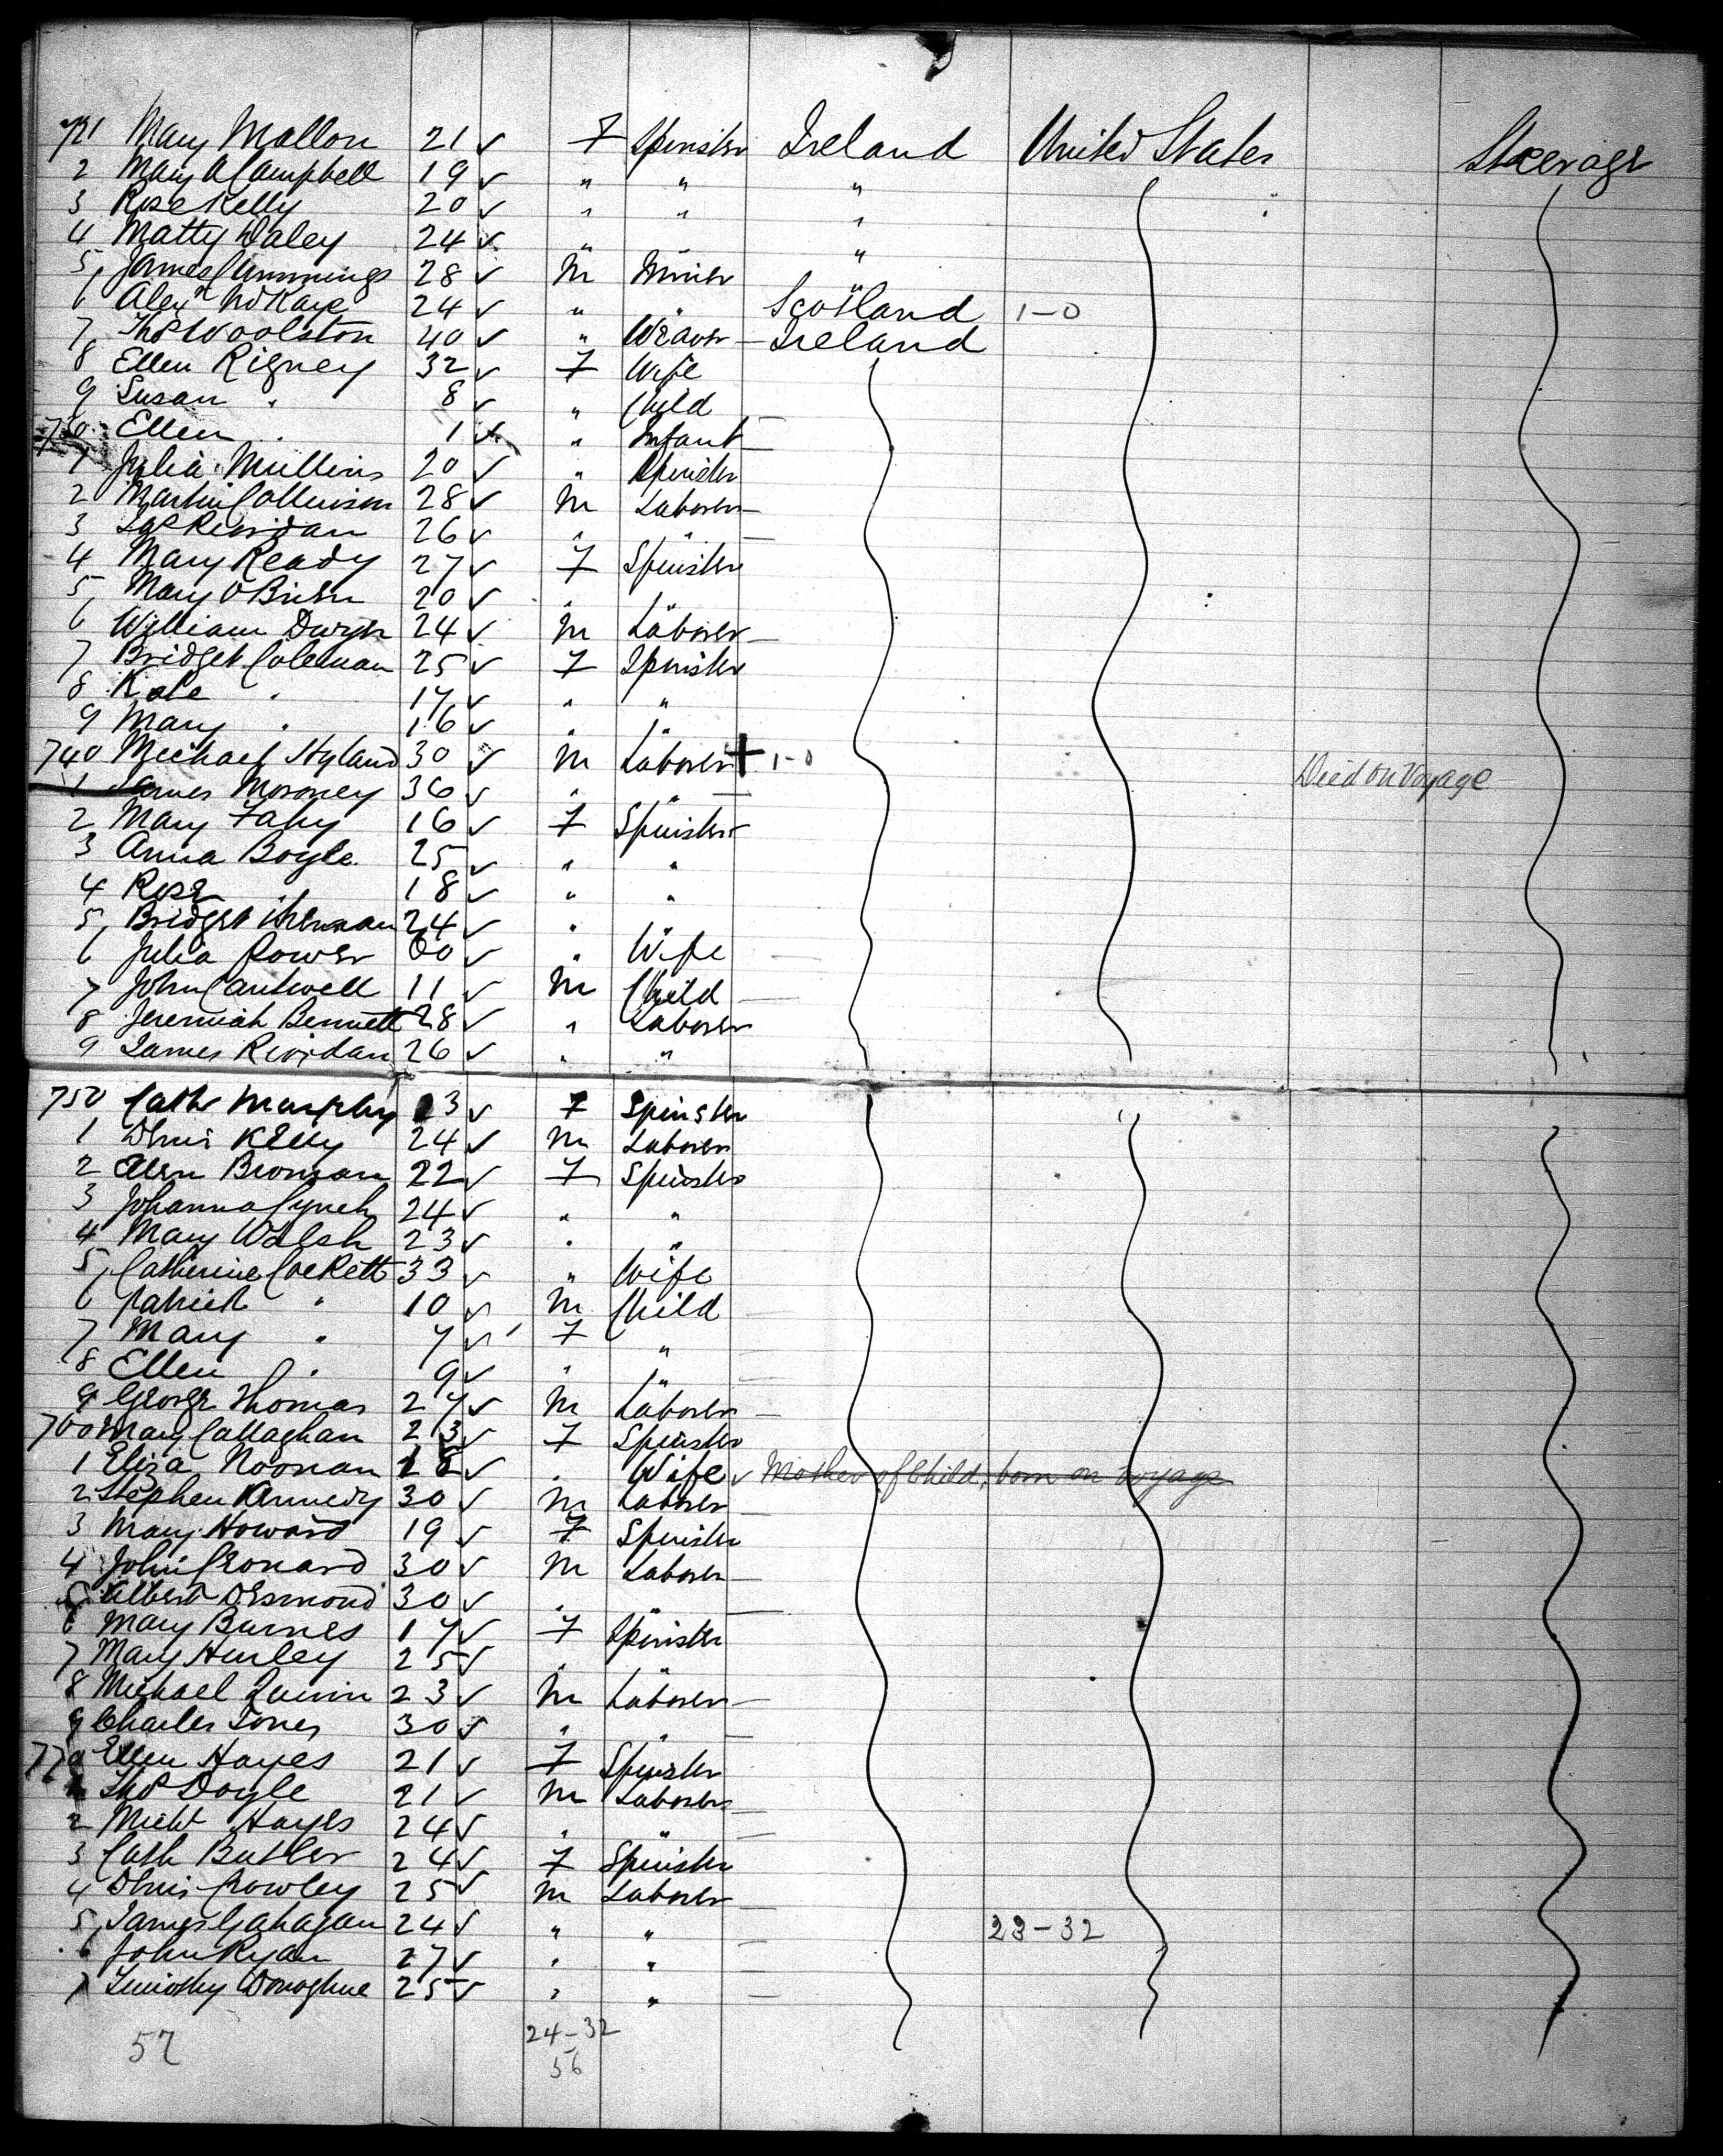 721 Mary Mallon 21 ✓ F Spinster Ireland United States Steerage
2 Mary A Campbell 19 ✓ " " "
3 Rose Kelly 20 ✓ " " "
4 Matty Daley 24 ✓ " " "
5 James Cummings 28 ✓ M Miner
6 Alexr McKaye 24 ✓ " " Scotland 1-0
7 Thos Woolston 40 ✓ " Weaver - Ireland
8 Ellen Rigney 32 ✓ F Wife
9 Susan " 8 ✓ " Child
730 Ellen " 1 ✓ " Infant
1 Julia Mullins 20 ✓ " Spinster
2 Martin 28 ✓ M Laborer
3 Jas Riordan 26 ✓ " "
4 Mary Ready 27 ✓ F Spinster
5 Mary O'Brien 20 ✓ " "
6 William Dwyer 24 ✓ M Laborer
7 Bridget Coleman 25 ✓ F Spinster
8 Kate " 17 ✓ " "
9 Mary " 16 ✓ " "
740 Michael Hyland 30 ✓ M Laborer + 1-0 Died on Voyage
1 James Moroney 36 ✓ " "
2 Mary Fahy 16 ✓ F Spinster
3 Anna Boyle 25 ✓ " "
4 Rose " 18 ✓ " "
5 Bridget 24 ✓ " "
6 Julia Power 60 ✓ " Wife
7 John Cantwell 11 ✓ M Child
8 Jeremiah Bennett 28 ✓ " Laborer
9 James Riordan 26 ✓ " "
750 Cath Murphy 23 ✓ F Spinster
1 Denis Kelly 24 ✓ M Laborer
2 Ellen Brosnan 22 ✓ F Spinster
3 Johanna Lynch 24 ✓ " "
4 Mary Walsh 23 ✓ " "
5 Catherine Cockett 33 ✓ " Wife
6 Patrick " 10 ✓ M Child
7 Mary " 7 ✓ F "
8 Ellen " 9 ✓ " "
9 George Thomas 27 ✓ M Laborer
760 Mary Callaghan 23 ✓ F Spinster
1 Eliza Noonan 28 ✓ " Wife ✓ Mother of Child, born on voyage
2 Stephen Kennedy 30 ✓ M Laborer
3 Mary Howard 19 ✓ F Spinster
4 John Leonard 30 ✓ M Laborer
5 Albert Desmond 30 ✓ " "
6 Mary Burnes 17 ✓ F Spinster
7 Mary Hurley 25 ✓ " "
8 Michael Quinn 23 ✓ M Laborer
9 Charles Jones 30 ✓ " "
770 Ellen Hayes 21 ✓ F Spinster
1 Thos Doyle 21 ✓ M Laborer
2 Michl Hayes 24 ✓ " "
3 Cath Butler 24 ✓ F Spinster
4 Denis Crowley 25 ✓ M Laborer
5 James Gahagan 24 ✓ " " 23-32
6 John Ryan 27 ✓ " "
7 Timothy Donoghue 25 ✓ " "
57 24-32
56